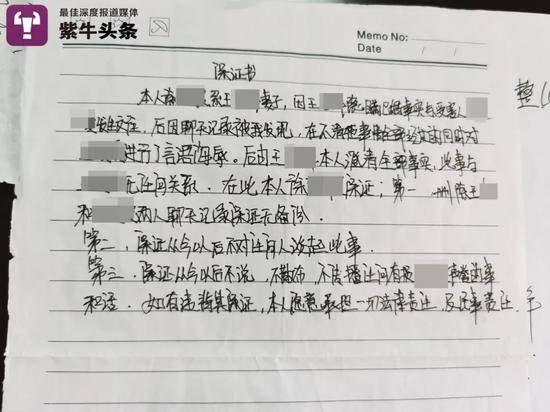 最佳深度报道媒体
紫牛头条
Memo No:
Date / /
保证书
本人徐 系王 妻子,因王 隐瞒已婚事实与受害人
交往,后因聊天记录被我发现,在不清楚事情全部经过的同时对
进行了言语侮辱。后由王 本人澄清全部事实,此事与
无任何关系。在此本人徐 保证:第一 删除王
和 两人聊天记录保证无备份。
第二,保证从今以后不对任何人谈起此事。
第三,保证从今以后不说,不散布,不传播任何有损 声誉的事
和话。如有违背其保证,本人愿意承担一切法律责任,及民事责任。